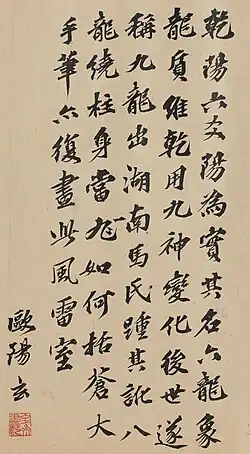 乾陽六爻陽為實其名六龍象
龍質維乾用九神變化後世遂
稱九龍出湖南馬氏踵其訛八
龍繞柱身當九如何栝蒼大
手筆六復畫此風雷室
歐陽玄